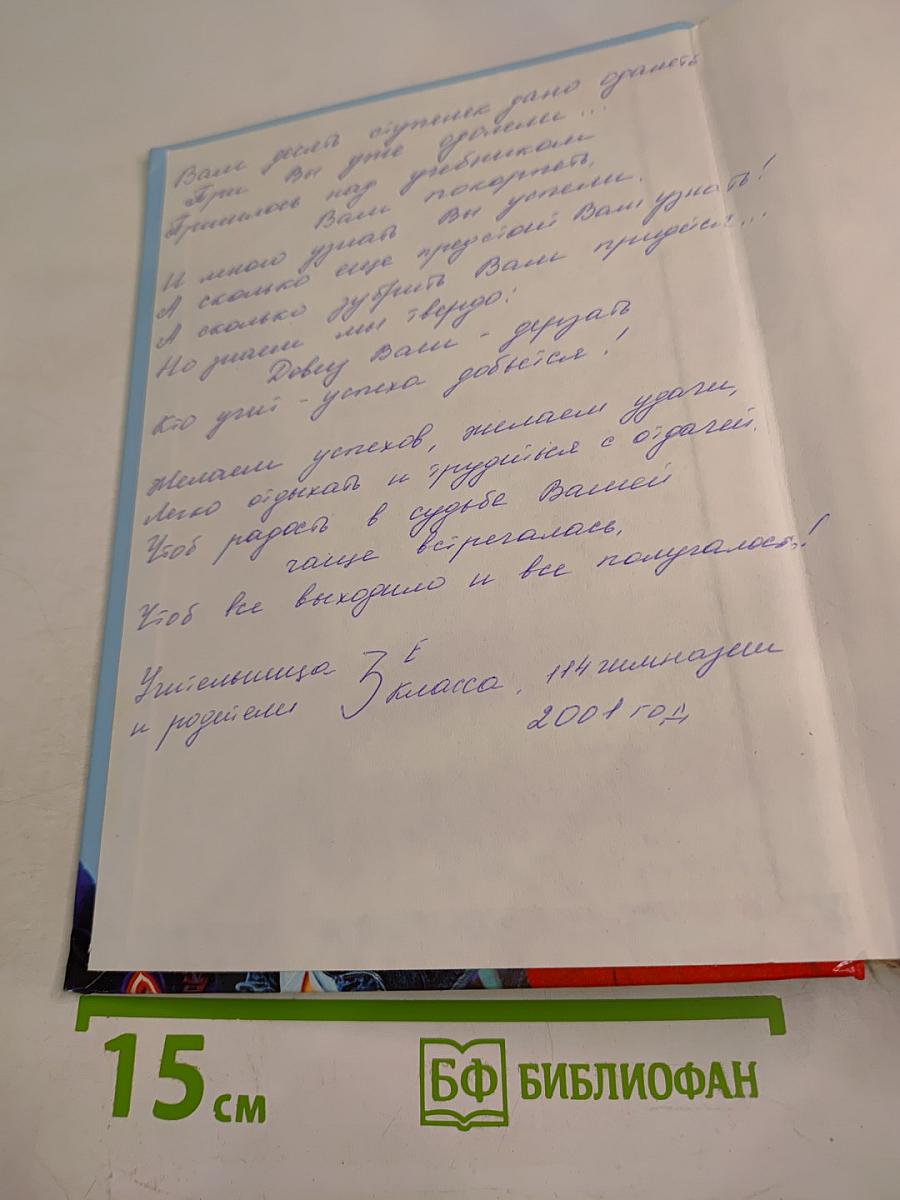 Вам десять ступенек дано одолеть
Три Вы уже одолели...
Пришлось над учебником
Вам покорпеть,
И много узнать Вы успели.
А сколько еще предстоит Вам узнать!
А сколько зубрить Вам придётся...
Но знаем мы твердо:
Девиз Вам - дерзать
Кто учит - успеха добьётся!
Желаем успехов, желаем удачи,
Легко отдыхать и трудиться с отдачей.
Чтоб радость в судьбе Вашей
чаще встречалась,
Чтоб все выходило и все получалось!
Учительница
и родители 3 Е класса, 114 гимназии
2001 год
15 см
БФ БИБЛИОФАН